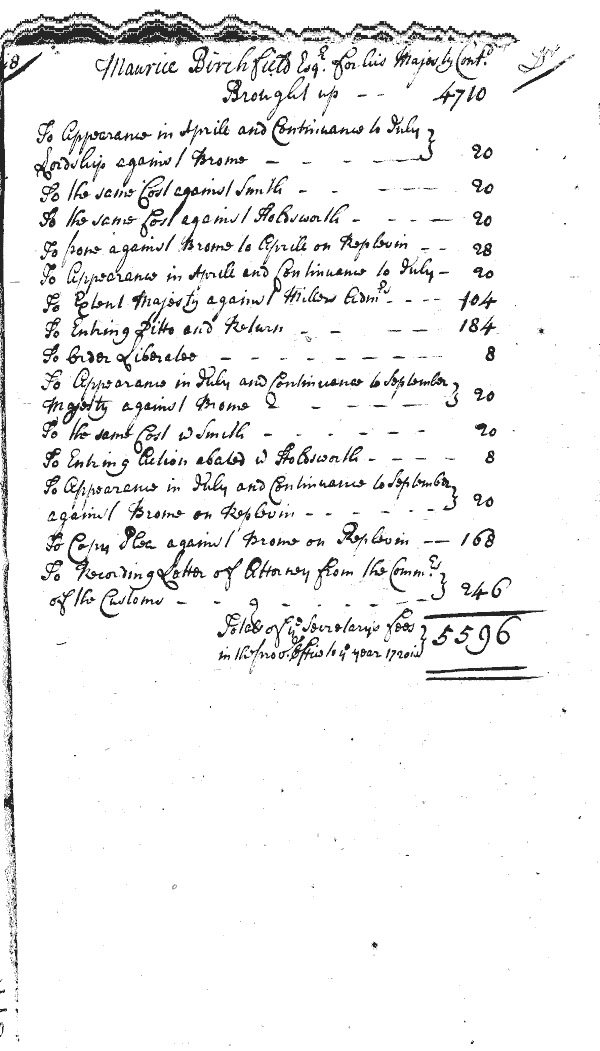 Maurice Birchfield Esqr. for his Majesty Contd.
Brought up -- 4710
To Appearance in Aprile and Continuance to July
Lordship against Brome - - - - 20
To the same Cost against Smith - - - - 20
To the same Cost against Holdsworth - - - - 20
To pone against Brome to Aprile on Replevin -- 28
To Appearance in Aprile and Continuance to July - 20
To Extent Majesty against Hillers Admrs. - - - - 104
To Entring Ditto and Return - - - - 184
To Order Liberatee - - - - - - - 8
To Appearance in July and Continuance to September
Majesty against Brome - - - - - 20
To the same Cost w Smith - - - - - 20
To Entring Action abated w Holdsworth - - - - 8
To Appearance in July and Continuance to September
against Brome on Replevin - - - - - - 20
To Copy Plea against Brome on Replevin -- 168
To Recording Letter of Attorney from the Commrs.
of the Customs - - - - - - - 246
Totale of ye Secretarys fees
in the Office to ye year 1720 5596